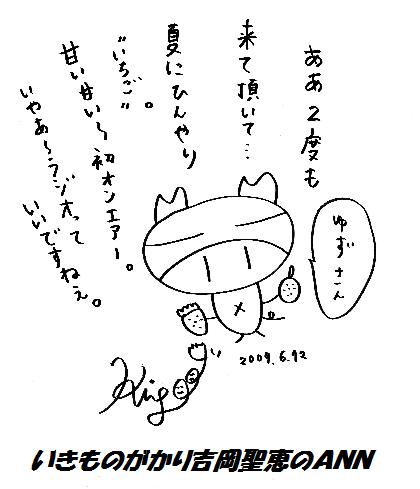 ああ2度も
来て頂いて…
夏にひんやり
"いちご"。
甘い甘い〜初オンエアー。
いやぁ〜ラジオって
いいですねぇ。
ゆずさん
2009.6.12
いきものがかり吉岡聖恵のANN